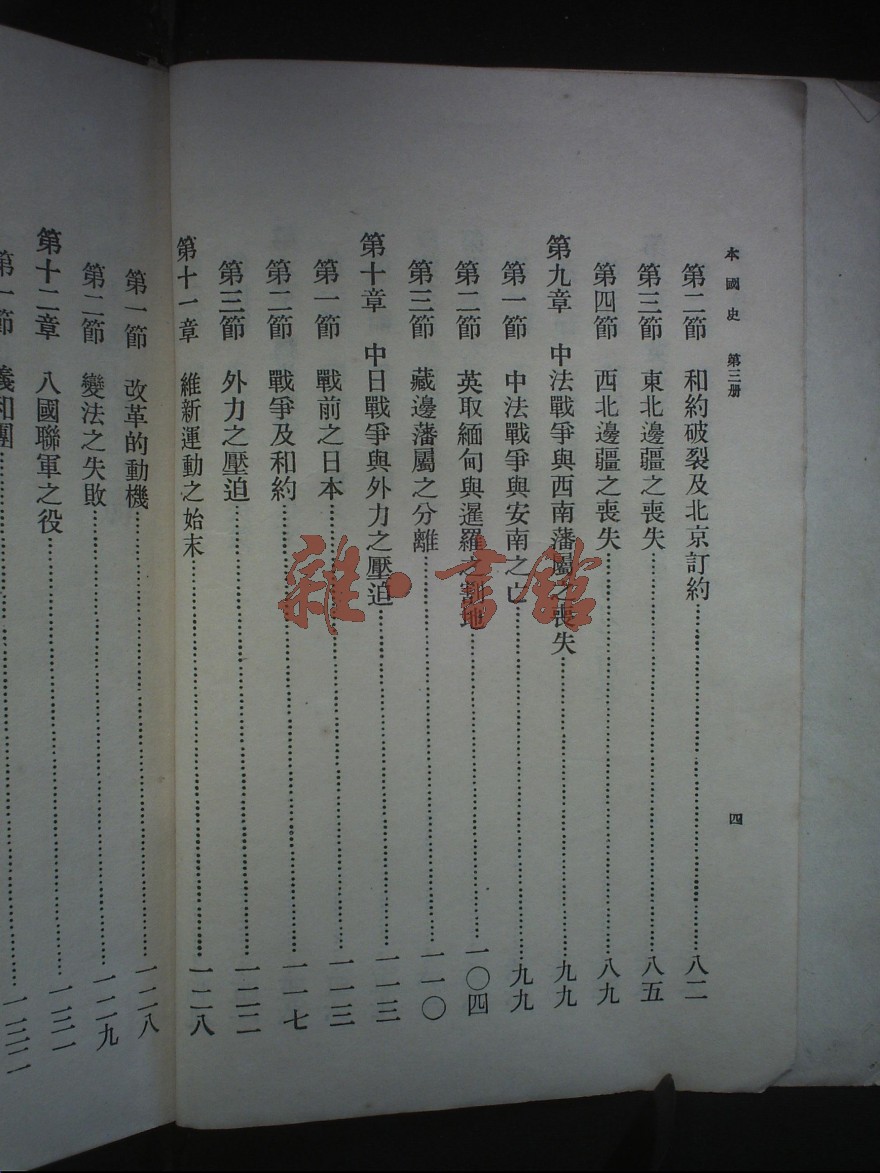 本國史 第三册 四
第二節 和約破裂及北京訂約……八二
第三節 東北邊疆之喪失……八五
第四節 西北邊疆之喪失……八九
第九章 中法戰爭與西南藩屬之喪失……九九
第一節 中法戰爭與安南之亡……九九
第二節 英取緬甸與暹羅之割地……一〇四
第三節 藏邊藩屬之分離……一一〇
第十章 中日戰爭與外力之壓迫……一一三
第一節 戰前之日本……一一三
第二節 戰爭及和約……一一七
第三節 外力之壓迫……一二二
第十一章 維新運動之始末……一二八
第一節 改革的動機……一二八
第二節 變法之失敗……一二九
第十二章 八國聯軍之役……一三二
第一節 義和團……一三二
雜·書館